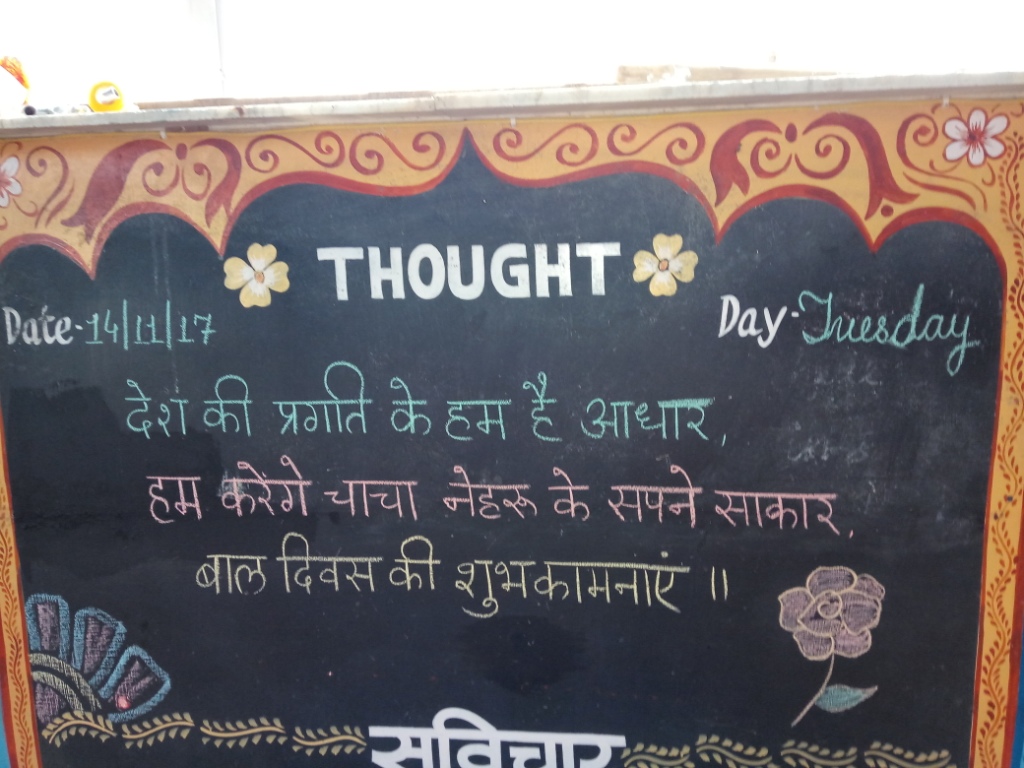 THOUGHT
Date-14/11/17 Day-Tuesday
देश की प्रगति के हम है आधार,
हम करेंगे चाचा नेहरू के सपने साकार,
बाल दिवस की शुभकामनाएं ॥
सुविचार